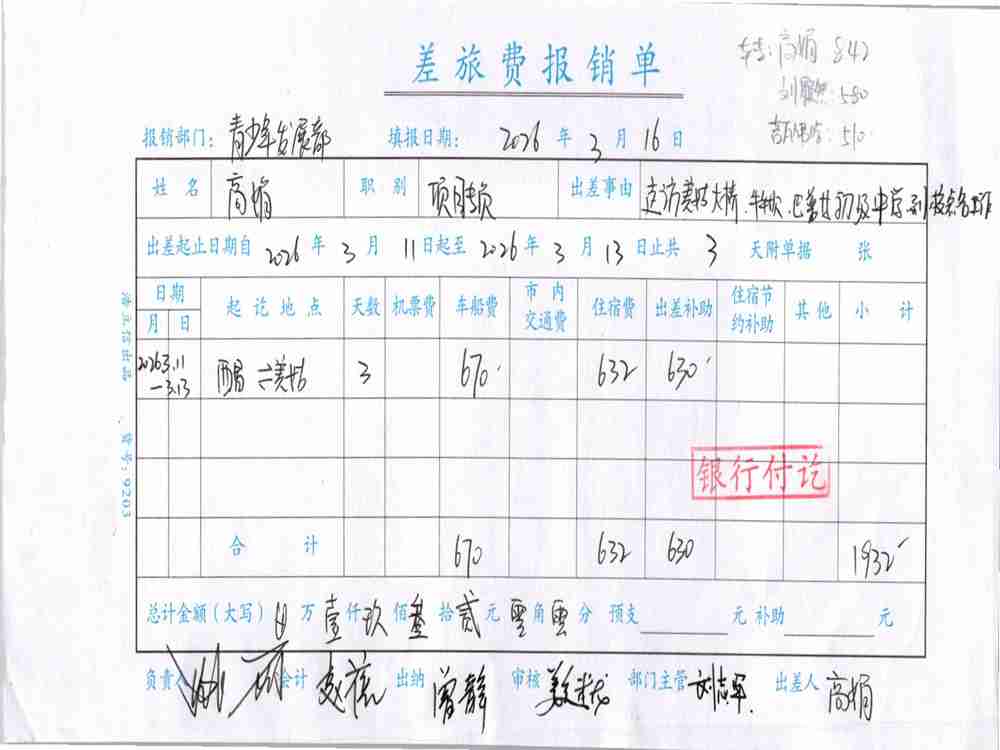 转：高娟 842
580
510
差旅费报销单
报销部门：青少年发展部 填报日期：2026年3月16日
姓名 高娟 职别 项目专员 出差事由 走访美姑大桥、牛牛坝、巴普
出差起止日期自2026年3月11日起至2026年3月13日止共3天附单据 张
日期 起讫地点 天数 机票费 车船费 市内交通费 住宿费 出差补助 住宿节约补助 其他 小计
月 日
2026 3.11-3.13 西昌⇌美姑 3 670 632 630
银行付讫
合计 670 632 630 1932
总计金额(大写) 万壹仟玖佰叁拾贰元零角零分 预支 元 补助 元
负责人 会计 出纳 曾静 审核 部门主管 刘志军 出差人 高娟
货号：9203